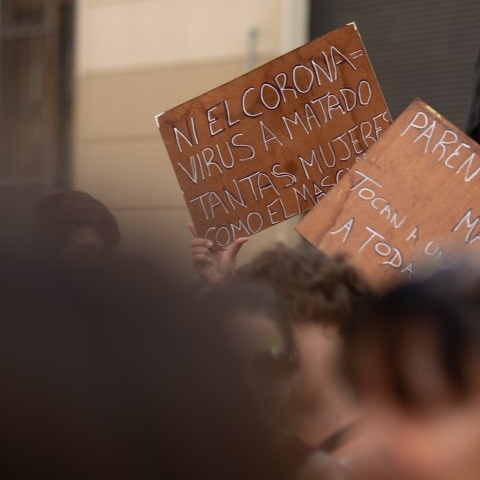 NI EL CORONA=
VIRUS A MATADO
TANTAS MUJERES
COMO EL
PAREN
TOCAN A
A TODA